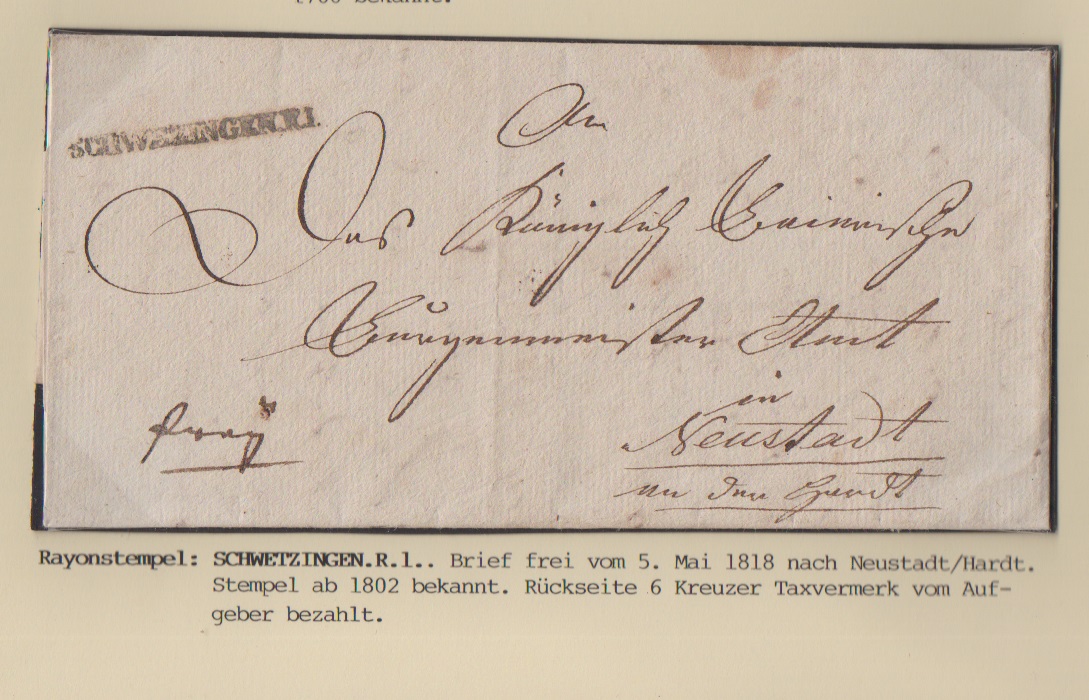 1700 bekannt.
SCHWETZINGEN.R.1.
An
Das Königlich Baierische
Burgermeister Amt
in
Neustadt
an der Hardt
frey
Rayonstempel: SCHWETZINGEN.R.1.. Brief frei vom 5. Mai 1818 nach Neustadt/Hardt.
Stempel ab 1802 bekannt. Rückseite 6 Kreuzer Taxvermerk vom Auf-
geber bezahlt.